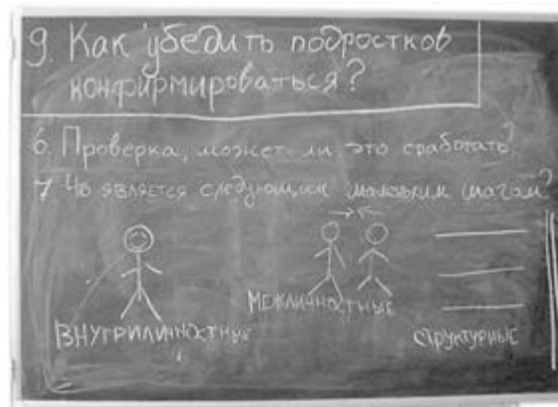 9. Как убедить подростков
конфирмироваться?
6. Проверка, может ли это сработать?
7 Что является следующим маленьким шагом?
ВНУТРИЛИЧНОСТНЫЕ
МЕЖЛИЧНОСТНЫЕ
СТРУКТУРНЫЕ